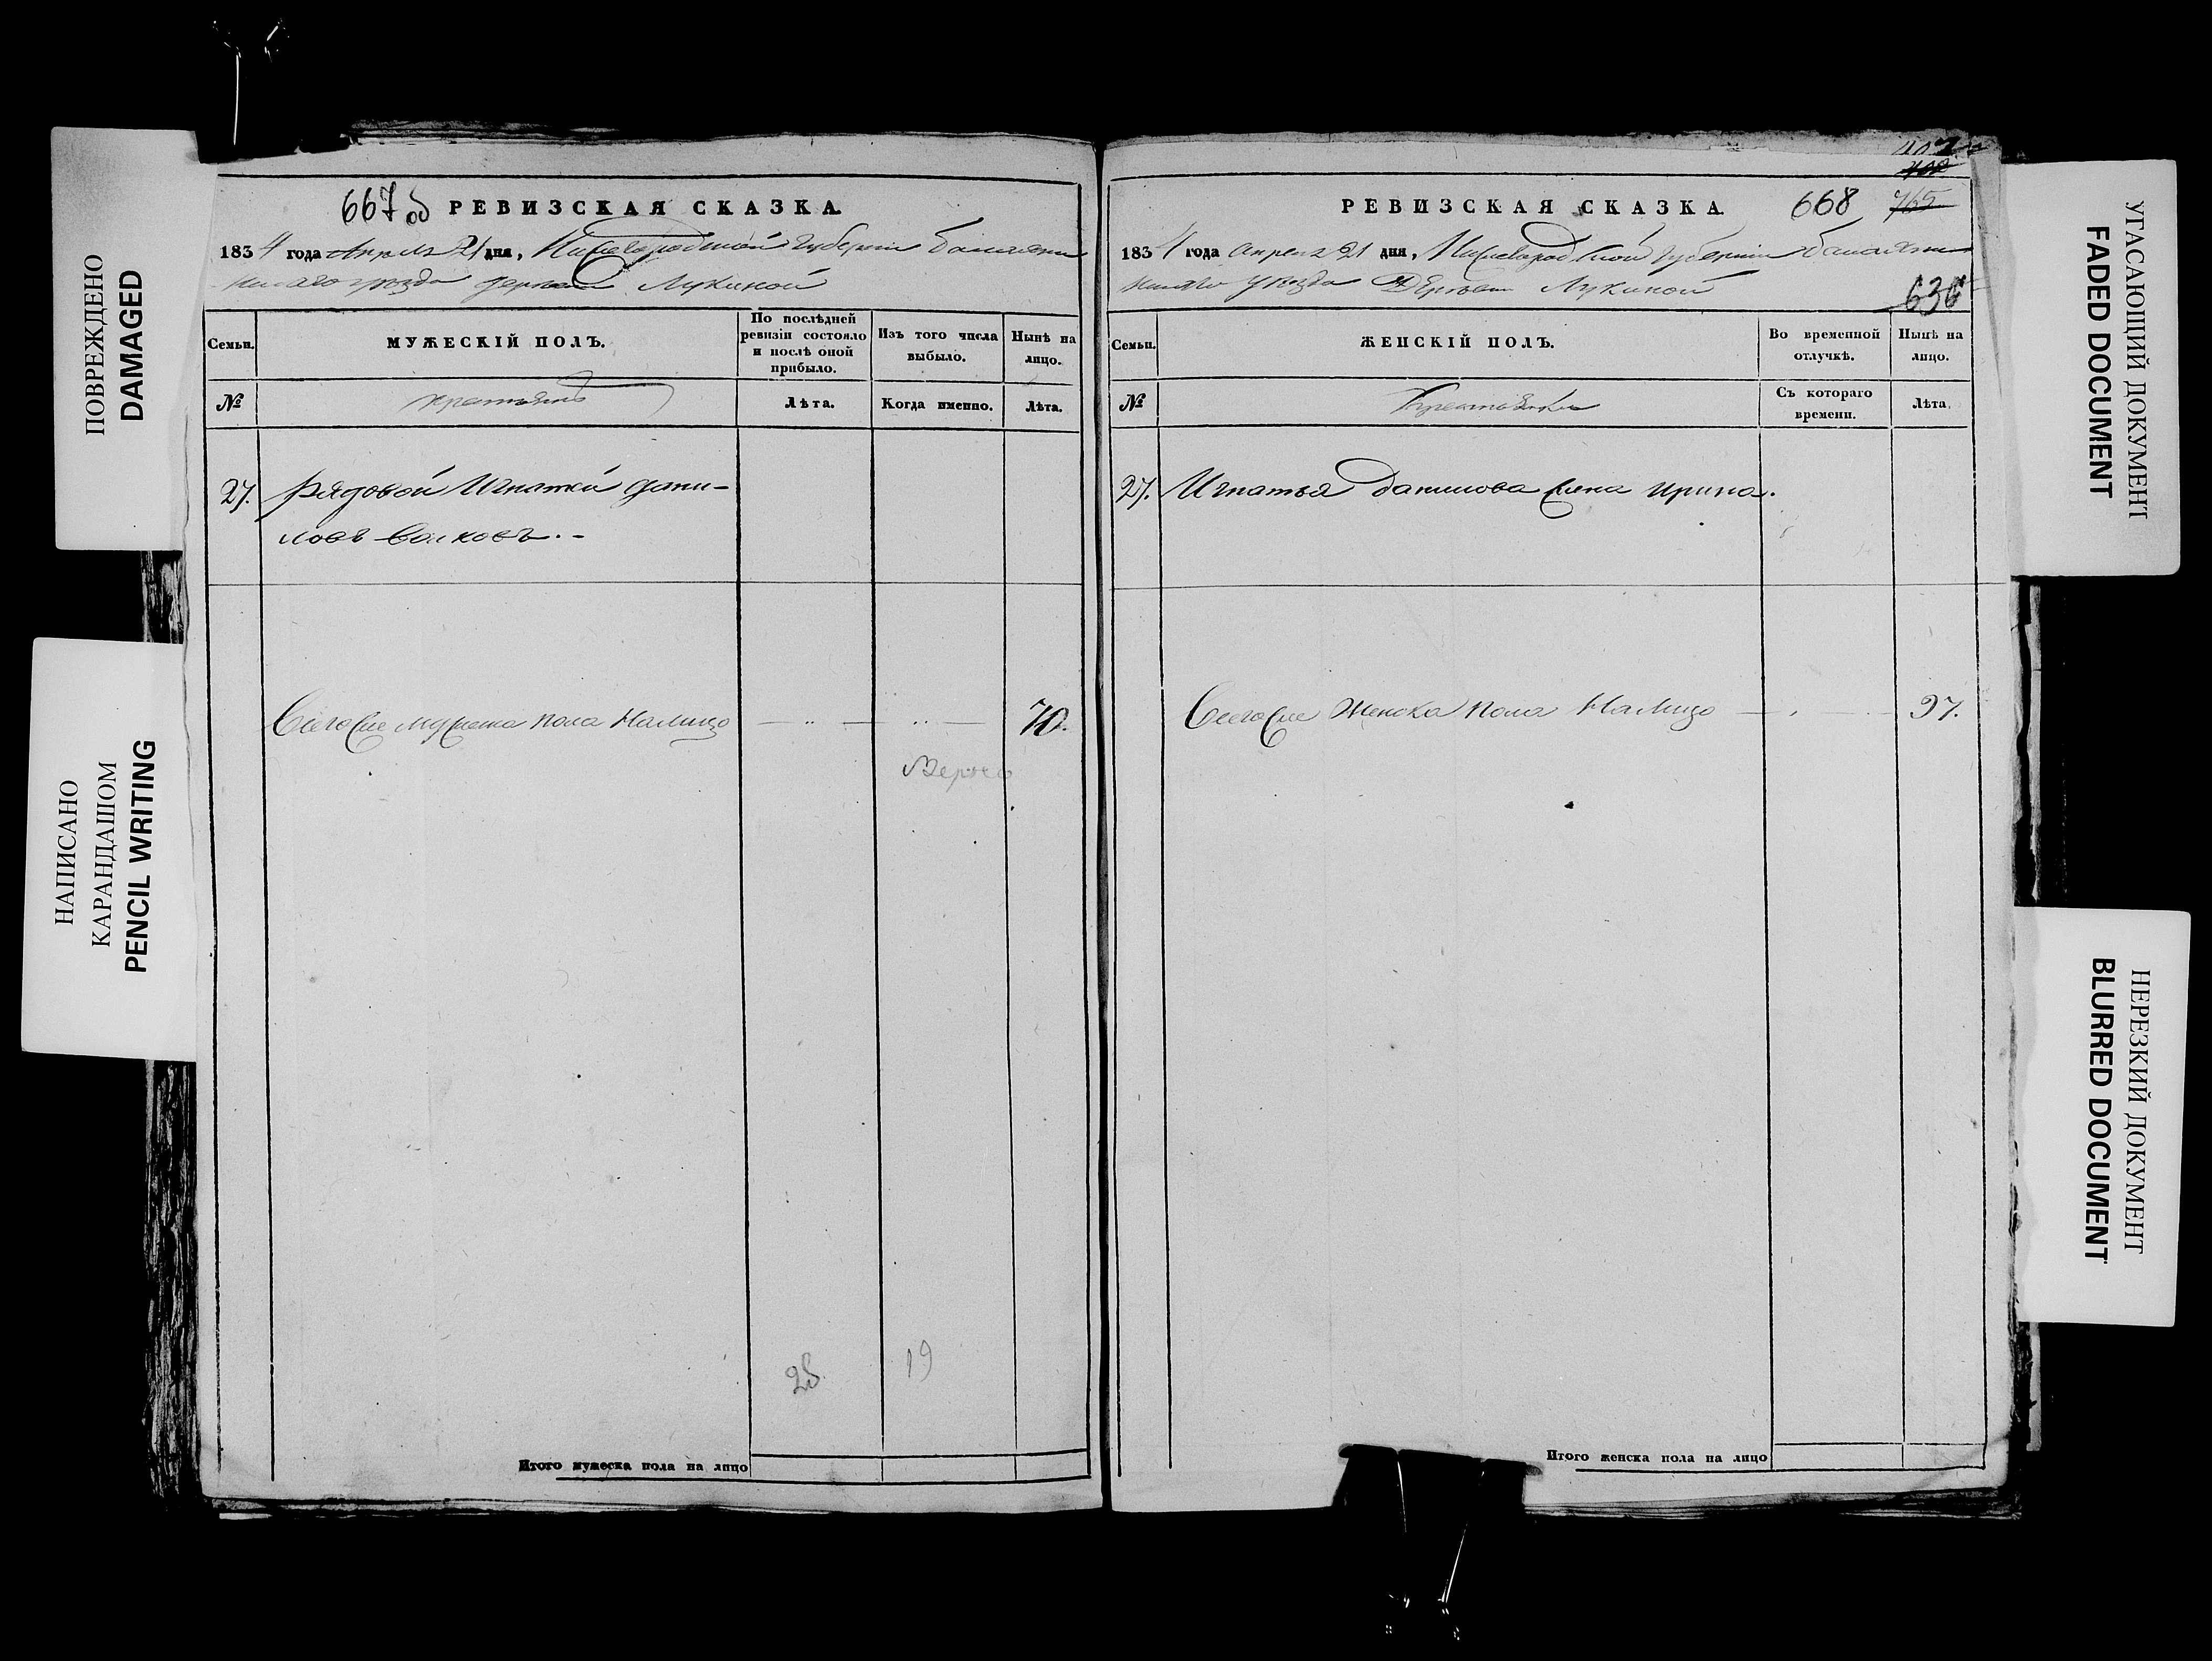 ПОВРЕЖДЕНО
DAMAGED
НАПИСАНО
КАРАНДАШОМ
PENCIL WRITING
667 об РЕВИЗСКАЯ СКАЗКА.
1834 года Апреля 21 дня, Нижегородской Губернии Балахни
нскаго уезда деревни Лукиной
Семьи.
МУЖЕСКІЙ ПОЛЪ.
По послѣдней
ревизіи состояло
и послѣ оной
прибыло.
Изъ того числа
выбыло.
Нынѣ на
лицо.
№
крестьянъ
Лѣта.
Когда именно.
Лѣта.
27. Рядовой Игнатей Дани-
ловъ Волковъ. -
Всего сие мужеска пола На лицо 70.
Верно
28 19
Итого мужеска пола на лицо
407
765
РЕВИЗСКАЯ СКАЗКА. 668
1834 года Апреля 21 дня, Нижегородской Губернии Балахни
нскаго Уезда Деревни Лукиной
636
Семьи.
ЖЕНСКІЙ ПОЛЪ.
Во временной
отлучкѣ.
Нынѣ на
лицо.
№
Крестьянки
Съ котораго
времени.
Лѣта.
27. Игнатья Данилова жена Ирина.
Всего сие Женска Пола На Лицо 97.
Итого женска пола на лицо
УГАСАЮЩИЙ ДОКУМЕНТ
FADED DOCUMENT
НЕРЕЗКИЙ ДОКУМЕНТ
BLURRED DOCUMENT